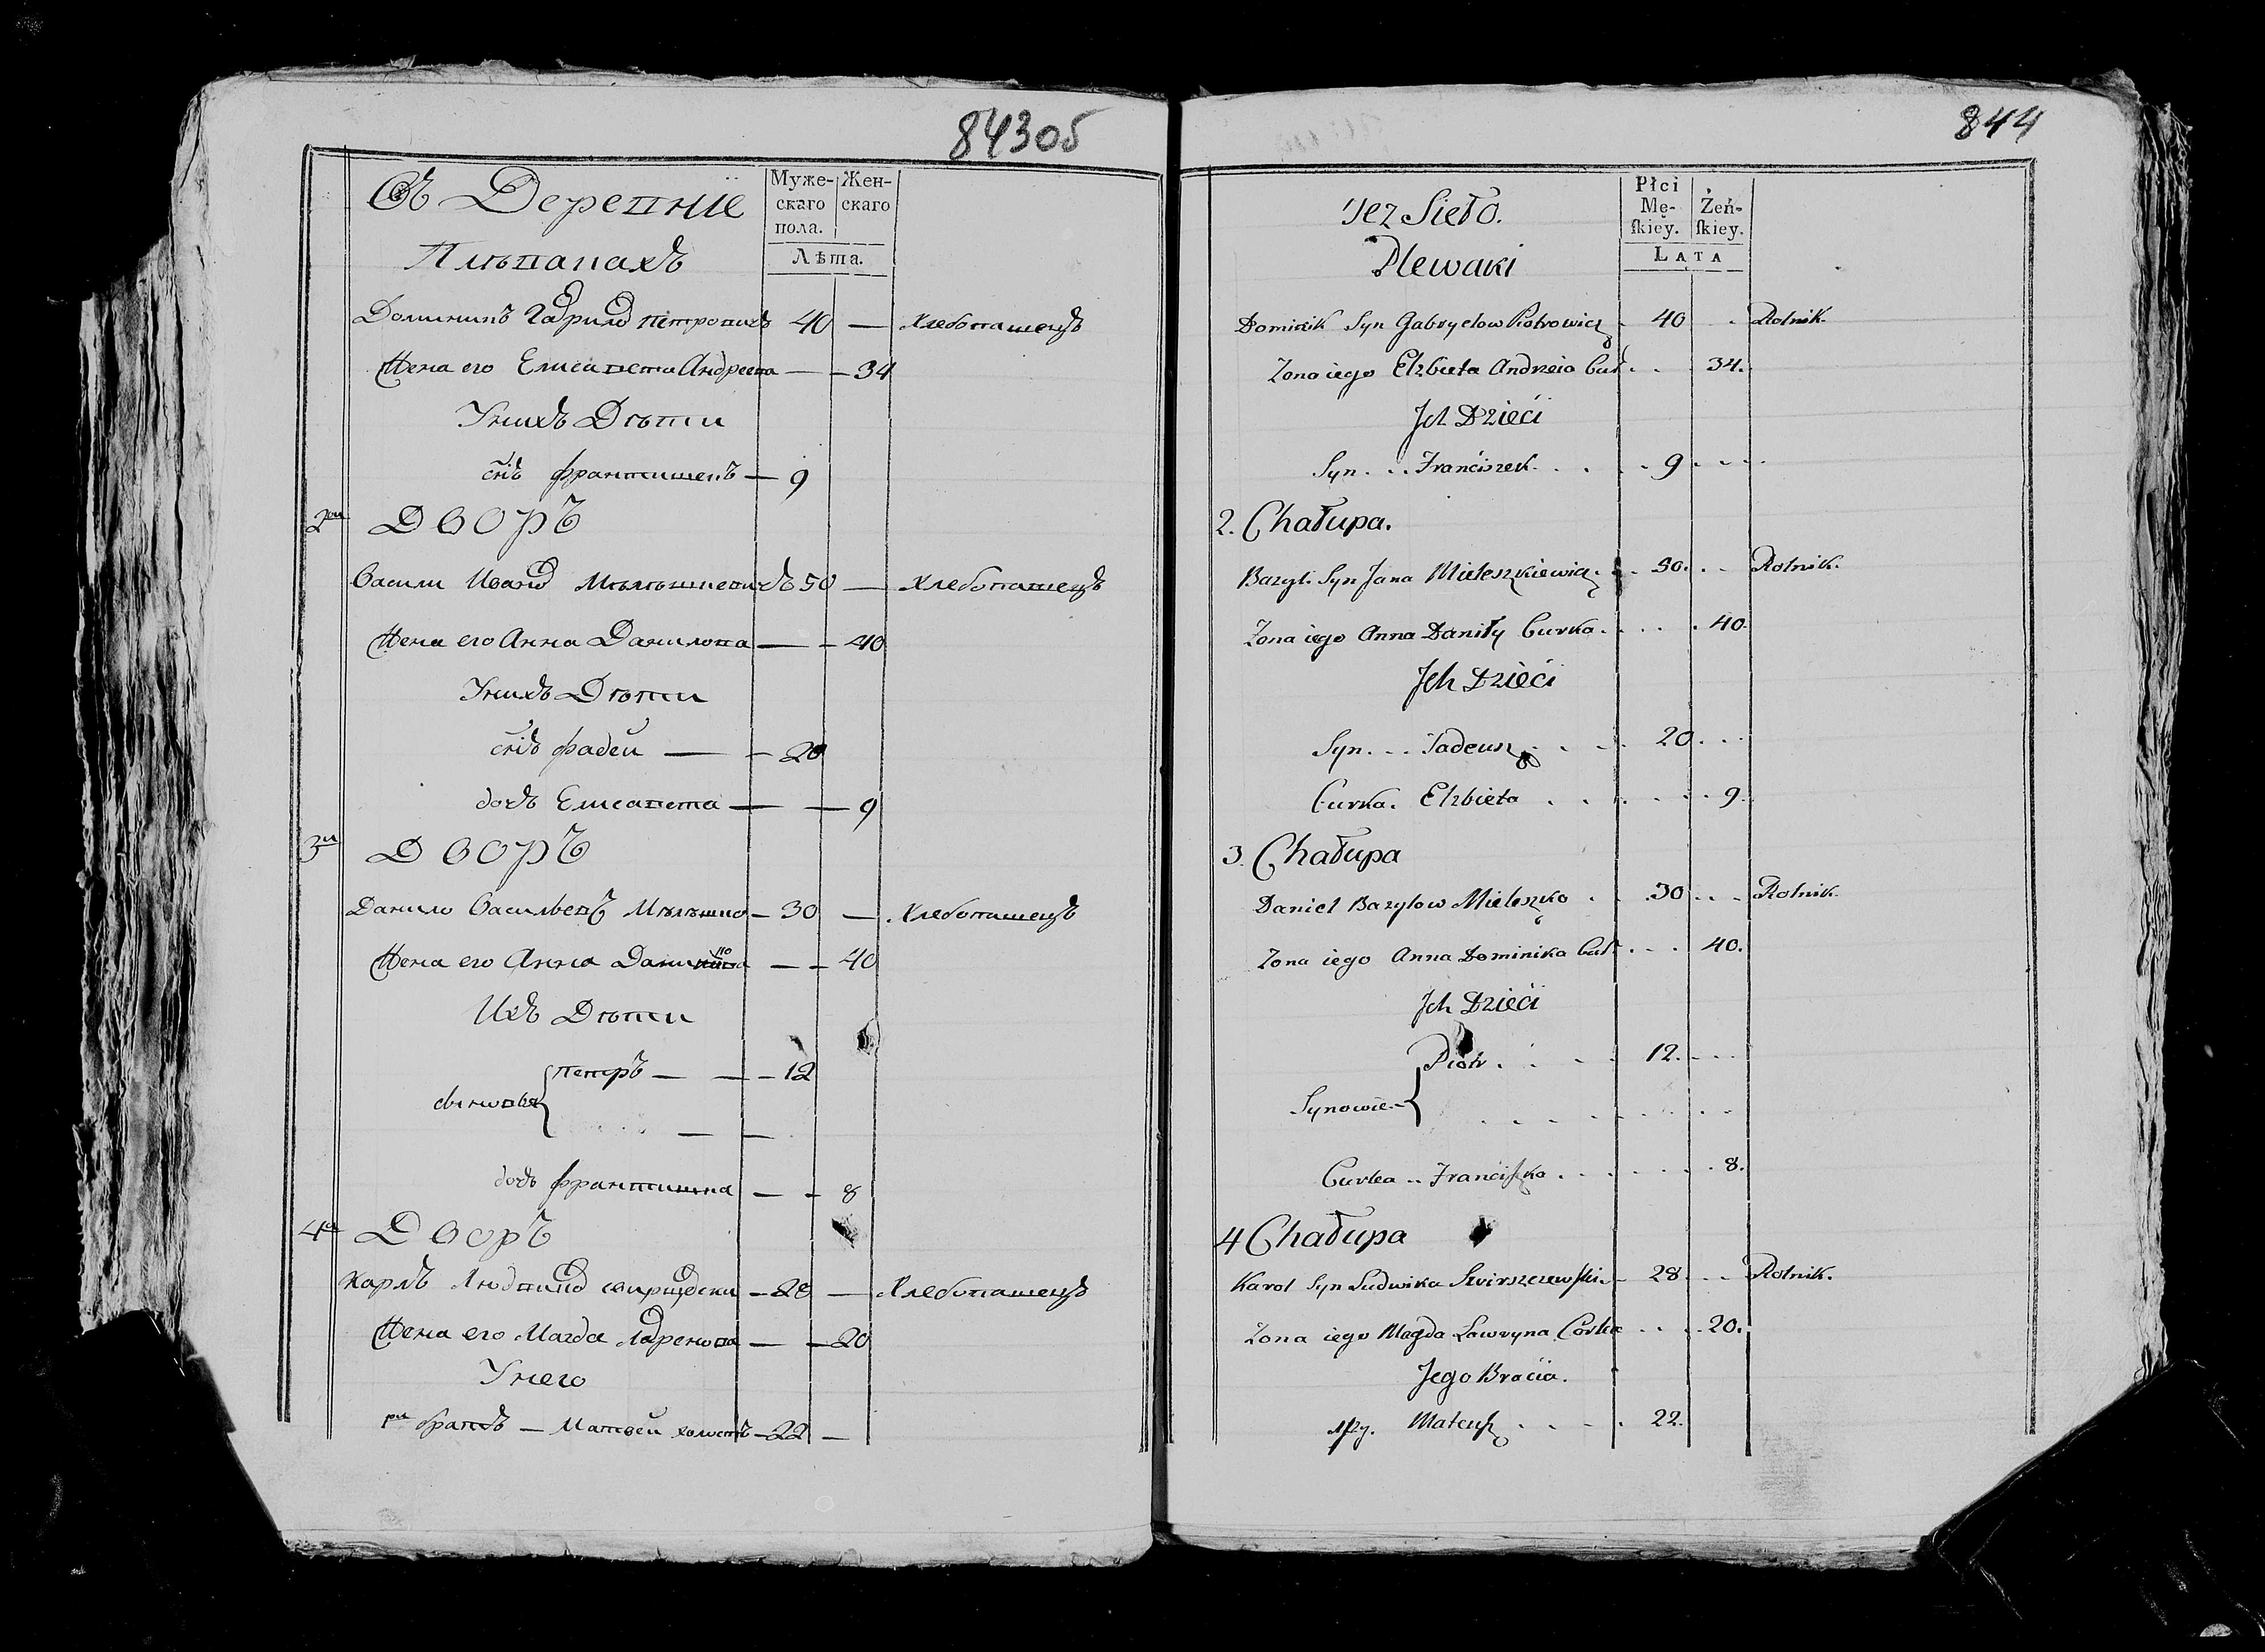 843об
Въ Деревнѣ
Плѣваках
Муже-
скаго
пола.
Жен-
скаго
Лѣта.
Доминикъ Гаврилов Петрович 40 — Хлебопашец
Жена его Елисавета Андреева — — 34
У них Дѣти
снъ Францишекъ — 9
2ой Дворъ
Васили Иванов Мѣлѣшкевич 50 — Хлебопашец
Жена его Анна Данилова — — 40
У них Дѣти
снъ Фадей — — 20
доч Елисавета — — 9
3й Дворъ
Данило Васильевъ Мѣлѣшко — 30 — Хлебопашец
Жена его Анна — — 40
Их Дѣти
сыновья { Петръ — — 12
— —
доч Францишка — — 8
4й Дворъ
Карлъ Людвиков Свирщевски — 28 — Хлебопашец
Жена его Магда Лавренова — — 20
У него
брат — Матвей холост — 22 —
844
Tez Sieło.
Plewaki
Płci
Mę-
skiey.
Żeń-
skiey.
LATA
Dominik Syn Gabryelow Piotrowicz 40 Rolnik.
Zona iego Elzbieta Andrzeia Cur. 34.
Jch Dzieci
Syn. Franciszek. 9
2. Chałupa.
Bazyl. Syn Jana Mieleszkiewicz. 50. Rolnik.
Zona iego Anna Daniły Curka. 40.
Jch Dzieci
Syn. Tadeusz 20
Curka. Elzbieta 9.
3. Chałupa
Daniel Bazylow Mieleszko 30 Rolnik.
Zona iego Anna Dominika Cur. 40.
Jch Dzieci
Synowie. { Piotr. 12.
Curka Franciszka 8.
4 Chałupa
Karol Syn Ludwika Swirszczewski 28 Rolnik.
Zona iego Magda Lawryna Corka 20.
Jego Bracia.
Mateusz 22.